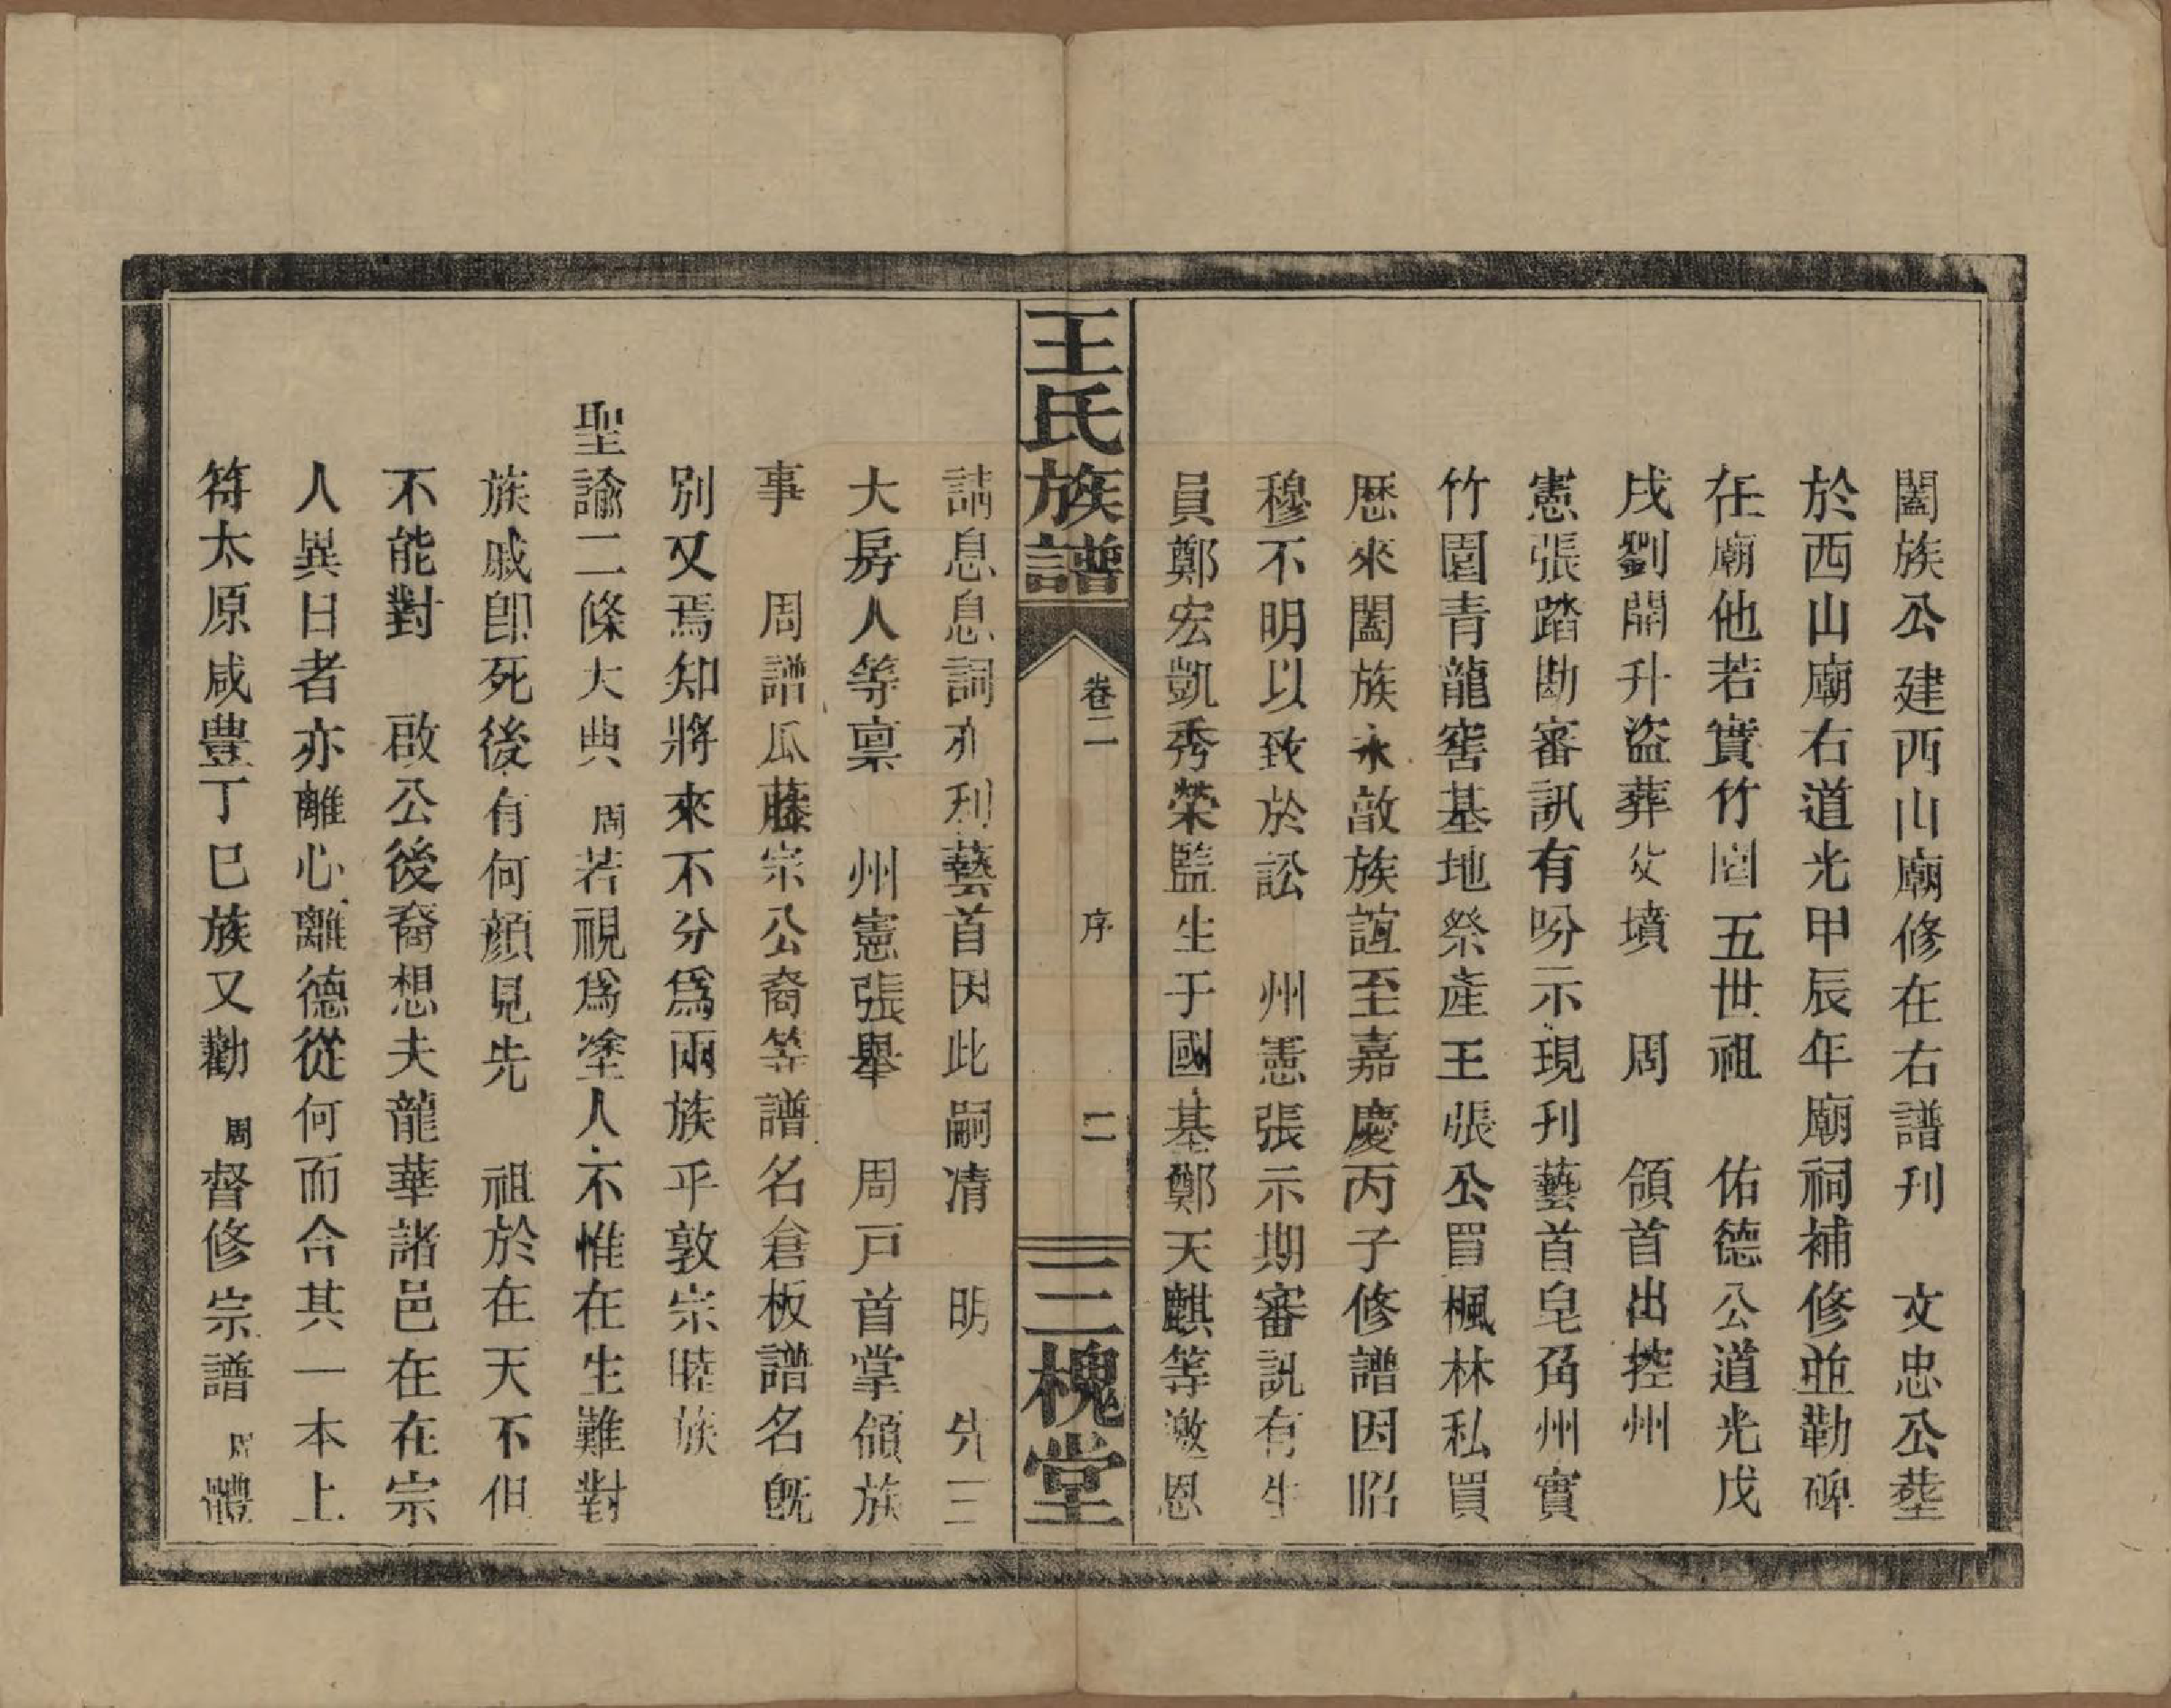 闔族公建西山廟修在右譜刊　文忠公塟
於西山廟右道光甲辰年廟祠補修並勒碑
在廟他若實竹園五世祖　佑德公道光戊
戌劉開升盜葬攵墳　周　領首出控州
憲張踏勘審訊有吩示現刊藝首皂角州實
竹園青龍窖基地祭產王張公買楓林私買
歷來闔族永敵族誼至嘉慶丙子修譜因昭
穆不明以致於訟　州憲張示期審訊有生
員鄭宏凱秀榮監生于國基鄭天麒等邀恩
王氏族譜
卷二
序
二
三槐堂
請息息詞亦利藝首因此嗣清　明　先三
大房人等稟　州憲張舉　周戸首掌領族
事　周譜瓜藤宗公裔等譜名倉板譜名旣
別又焉知將來不分爲兩族乎敦宗睦族
聖諭二條大典周若視爲塗人不惟在生難對
族戚卽死後有何顏見先　祖於在天不但
不能對　啟公後裔想夫龍華諸邑在在宗
人異日者亦離心離德從何而合其一本上
符太原咸豊丁巳族又勸周督修宗譜周體